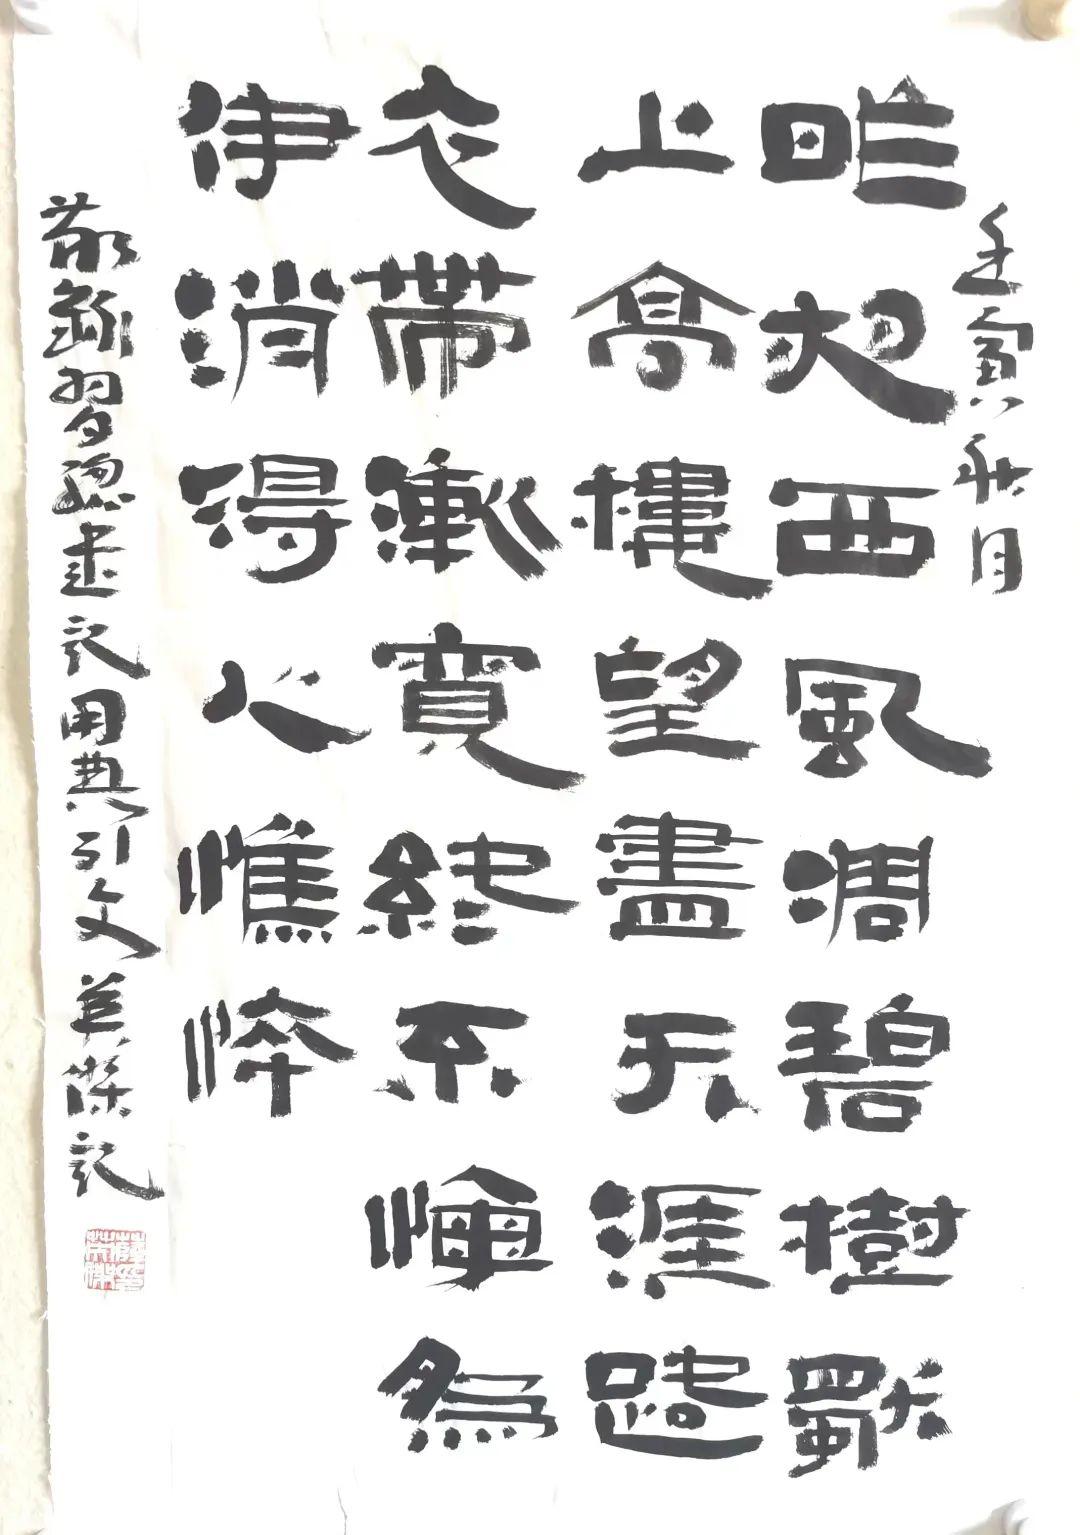 壬寅秋月
昨夜西風凋碧樹獨
上高樓望盡天涯路
衣帶漸寬終不悔為
伊消得人憔悴
敬錄習總書記用典引文英傑記